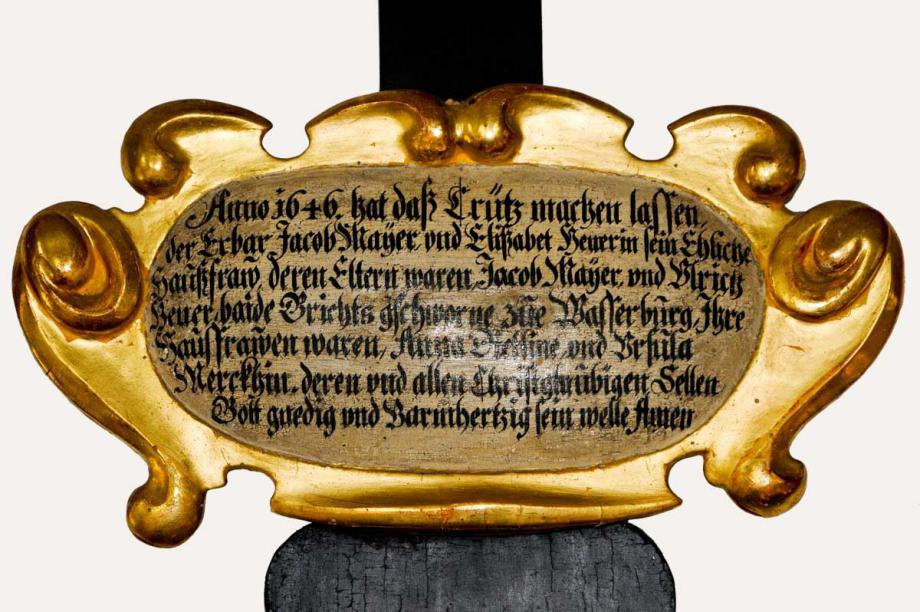 Anno 1646. hat daß Crütz machen lassen
der Erbar Jacob Mayer vnd Elißabet Heuerin sein Ehliche
Haußfraw, deren Eltern waren Jacob Mayer, vnd Vlrich
Heuer, baide Grichts gschworne zue Wasserburg, Ihre
Haussfrawen waren, Anna vnd Vrsula
Merckhin. deren vnd allen Christglaubigen Sellen
Gott gnedig vnd Barmhertzig sein welle Amen